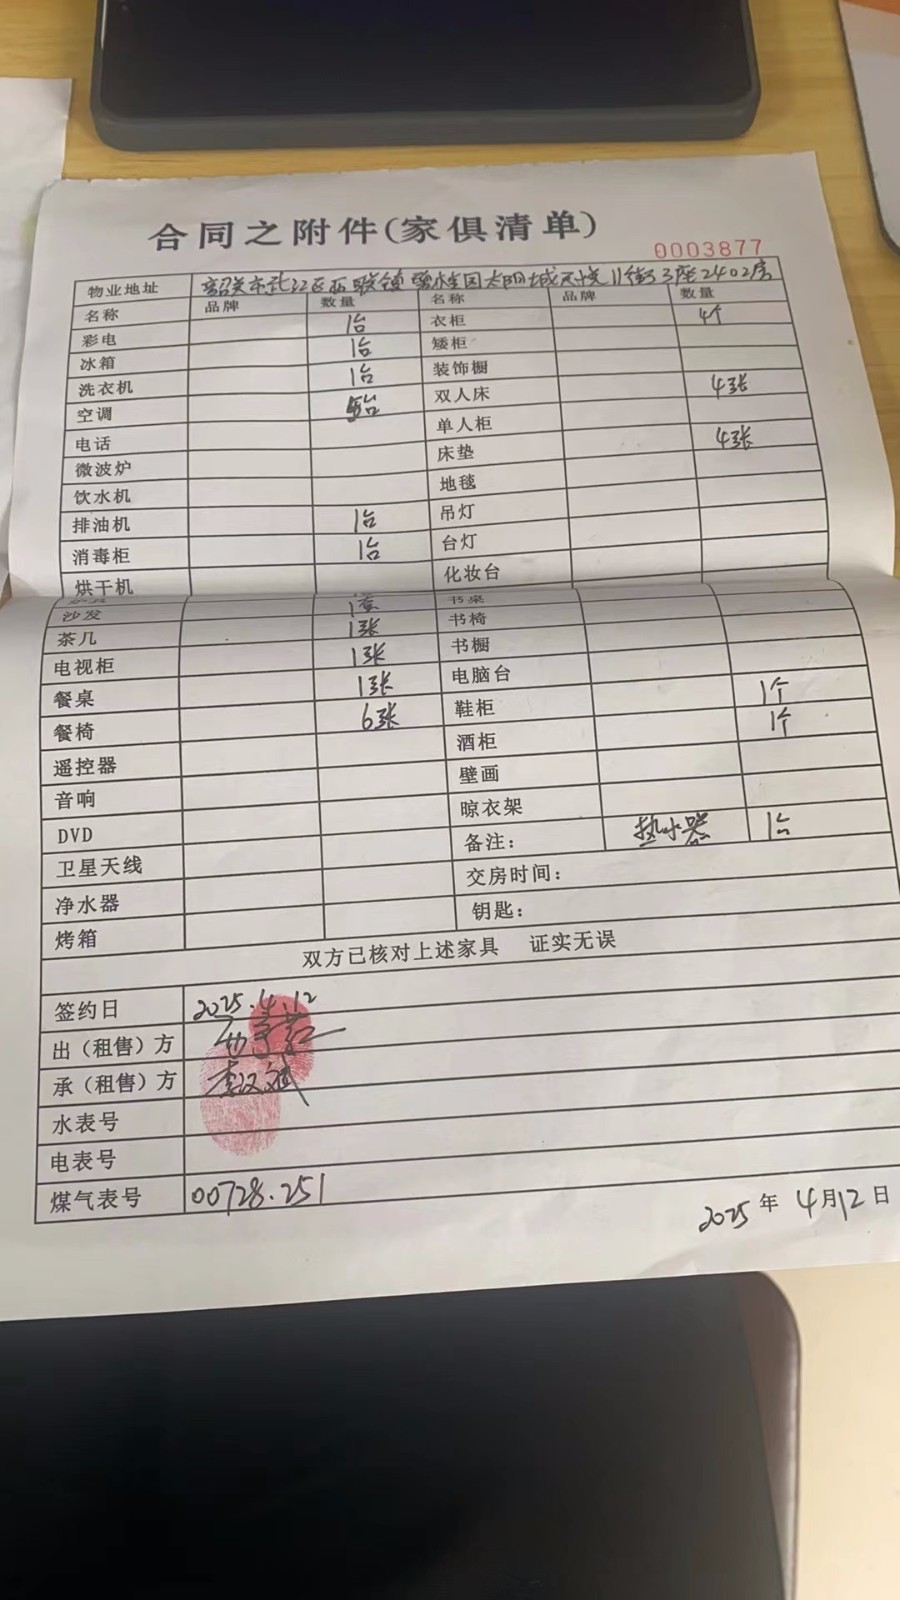 合同之附件(家俱清单)
0003877
物业地址 韶关市武江区西联镇碧桂园太阳城天悦11街3座2402房
名称 品牌 数量 名称 品牌 数量
彩电 1台 衣柜 4个
冰箱 1台 矮柜
洗衣机 1台 装饰橱
空调 台 双人床 4张
电话 单人柜
微波炉 床垫 4张
饮水机 地毯
排油机 1台 吊灯
消毒柜 1台 台灯
烘干机 化妆台
书桌
沙发 1套 书椅
茶几 1张 书橱
电视柜 1张 电脑台
餐桌 1张 鞋柜 1个
餐椅 6张 酒柜 1个
遥控器 壁画
音响 晾衣架
DVD 备注: 热水器 1台
卫星天线 交房时间:
净水器 钥匙:
烤箱
双方已核对上述家具 证实无误
签约日 2025.4.12
出(租售)方
承(租售)方 李汉斌
水表号
电表号
煤气表号 00728.251
2025年4月12日